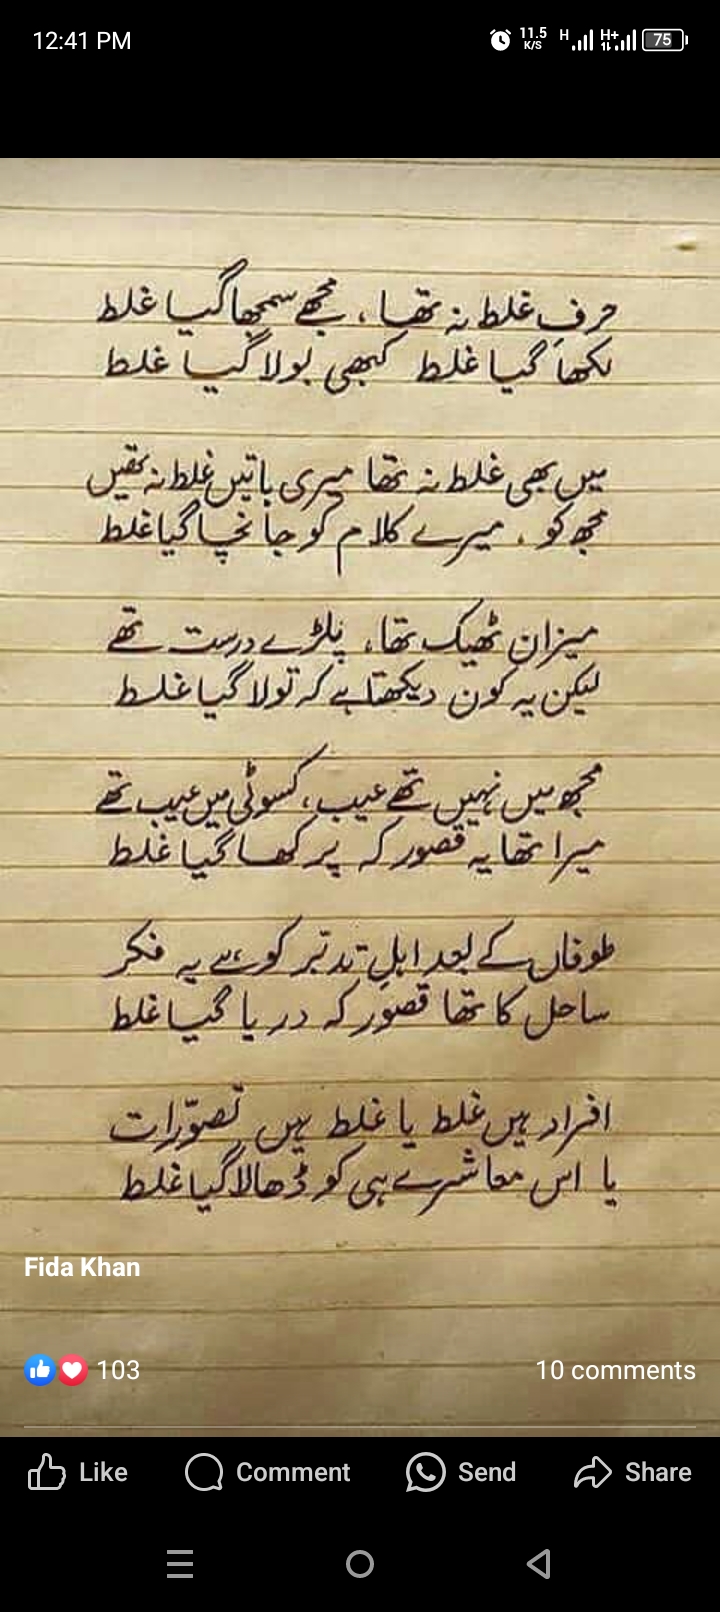 12:41 PM
11.5 K/S H H+ 75
حرفِ غلط نہ تھا، مجھے سمجھا گیا غلط
لکھا گیا غلط کبھی بولا گیا غلط
میں بھی غلط نہ تھا میری باتیں غلط نہ تھیں
مجھ کو، میرے کلام کو جانچا گیا غلط
میزان ٹھیک تھا، پلڑے درست تھے
لیکن یہ کون دیکھتا ہے کہ تولا گیا غلط
مجھ میں نہیں تھے عیب، کسوٹی میں عیب تھے
میرا تھا یہ قصور کہ پرکھا گیا غلط
طوفاں کے بعد اہلِ تدبّر کو ہے یہ فکر
ساحل کا تھا قصور کہ دریا گیا غلط
افراد ہیں غلط یا غلط ہیں تصوّرات
یا اس معاشرے ہی کو ڈھالا گیا غلط
Fida Khan
103 10 comments
Like Comment Send Share